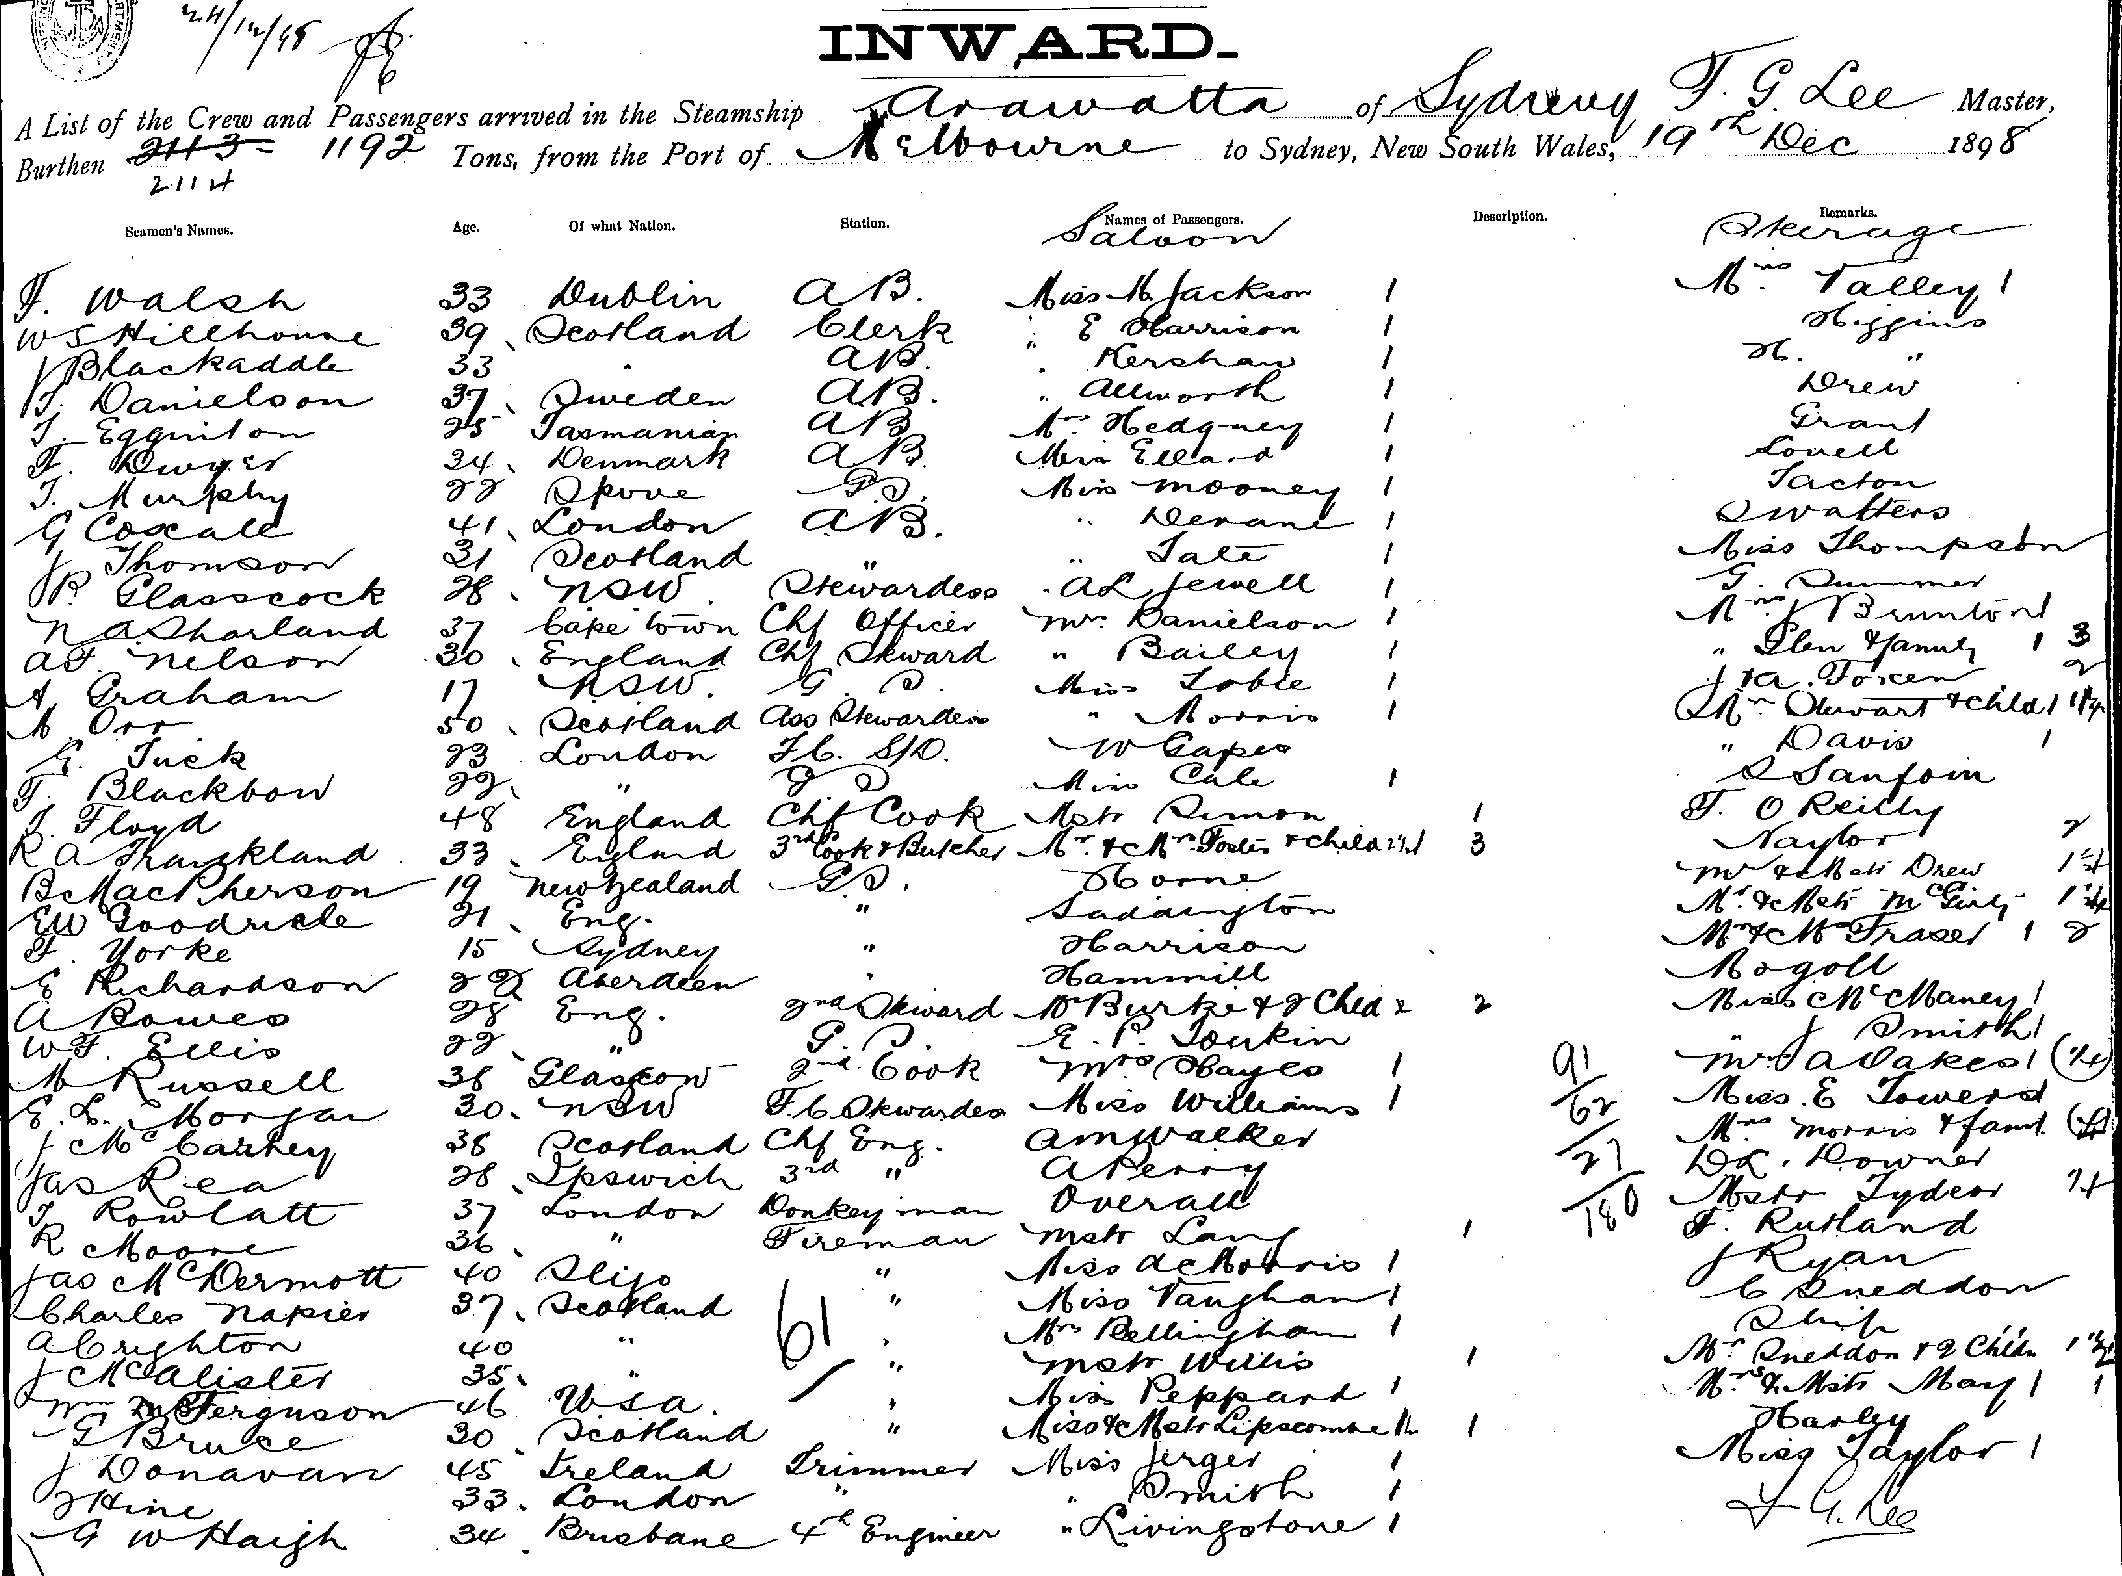 24/12/98
INWARD.
A List of the Crew and Passengers arrived in the Steamship Arawatta of Sydney F. G. Lee Master,
Burthen 2113 1192 Tons, from the Port of Melbourne to Sydney, New South Wales, 19th Dec 1898
2114
Seamen's Names. Age. Of what Nation. Station. Names of Passengers. Description. Remarks.
Saloon Steerage
F. Walsh 33 Dublin AB. Miss M Jackson 1 Mrs Talley 1
W S Hillhouse 39 Scotland Clerk " E Harrison 1 Higgins
J Blackadde 33 " AB. " Kershaw 1 H. "
T. Danielson 37 Sweden AB. " Allworth 1 Drew
T. Egginton 25 Tasmanian AB Mrs Hedgney 1 Grant
F. Dwyer 24 Denmark AB. Miss Ellard 1 Lovell
T. Murphy 22 G.S. Miss Mooney 1 Tacton
G Coxall 41 London AB. " 1 S Watters
J Thomson 31 Scotland " " Tate 1 Miss Thompson 1
P. Glasscock 28 NSW. Stewardess A L Jewell 1 G. Summer
N A Sharland 37 Cape Town Chf Officer Mrs. Danielson 1 Mrs J Brunton 1
A F. Nelson 30 England Chf Steward " Bailey 1 " Glen & family 1 3
A Graham 17 NSW. G. S. Miss Tobie 1 J & A. Foxen 2
M Orr 50 Scotland Ass Stewardess " Morris 1 Mrs Stewart & child 1
G. Tuck 23 London F.C. S/D. W Gapes " Davis 1
F. Blackbow 22 " G S Miss Cale 1 S Sanfoin
J. Floyd 48 England Chf Cook Mstr Simon 1 T. O Reilly
R A Frankland 33 England 3rd Cook & Butcher Mr. & Mrs. Foster & child 3 Naylor 2
B MacPherson 19 New Zealand G.S. Horne Mr & Mstr Drew
EW Goodricke 21 Eng. " Saddington Mr. & Mstr McGinty
F. Yorke 15 Sydney " Harrison Mr & Mrs Fraser 1 2
E Richardson 22 Aberdeen " Hammill Mogoll
A Bowes 28 Eng. 2nd Steward Mr Burke & 2 Child 2 2 Miss McManey 1
W F. Ellis 22 " G. S. E. P. Tonkin " J Smith 1
M Russell 38 Glascow 2nd Cook Mrs Hayes 1 91 Mrs A Oakes 1
E. L. Morgan 30 NSW F.C. Stewardess Miss Williams 1 62 Miss E Towers 1
J McCartney 38 Scotland Chf Eng. A M Walker 27 Mrs Morris & faml
Jas Rea 28 Ipswich 3rd " A Perry 180 D L. Downer
T Rowlatt 37 London Donkeyman Overall Mstr Tydeor
R Moore 36 " Fireman Mstr Lang 1 F. Rutland
Jas McDermott 40 Sligo " Miss de Morris 1 J Ryan
Charles Napier 37 Scotland 61 " Miss Vaughan 1 C Sneddon
A Crighton 40 " " Mrs Bellingham 1
J McAlister 35 " " Mstr Willis 1 Mrs Sneddon & 2 Childn 1
Wm McFerguson 46 USA. " Miss Peppard 1 Mrs & Mstr May 1 1
G Bruce 30 Scotland " Miss & Mstr Lipscombe 1 Harley
J Donavan 45 Ireland Trimmer Miss Jerger 1 Miss Taylor 1
J Hine 33 London " " Smith 1 F G. Lee
G W Haigh 34 Brisbane 4th Engineer " Livingstone 1